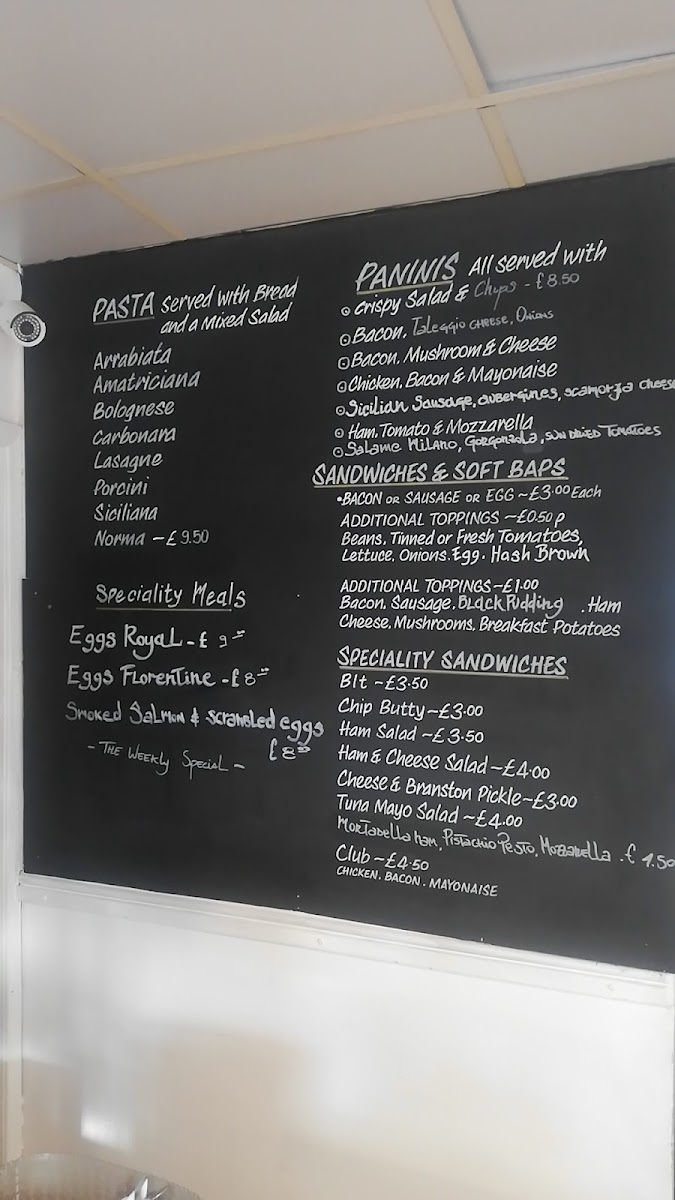 PASTA served with Bread
and a Mixed Salad
Arrabiata
Amatriciana
Bolognese
Carbonara
Lasagne
Porcini
Siciliana
Norma - £9.50
Speciality Meals
Eggs Royal - £9
Eggs Florentine - £8
Smoked Salmon & scrambled eggs
£8
- The Weekly Special -
PANINIS All served with
crispy Salad & Chips - £8.50
Bacon, Taleggio cheese, Onions
Bacon, Mushroom & Cheese
Chicken, Bacon & Mayonaise
Sicilian Sausage, aubergines, scamorza cheese
Ham, Tomato & Mozzarella
Salame Milano, Gorgonzola, sun dried Tomatoes
SANDWICHES & SOFT BAPS
•BACON OR SAUSAGE OR EGG ~ £3.00 Each
ADDITIONAL TOPPINGS ~ £0.50 p
Beans, Tinned or Fresh Tomatoes,
Lettuce, Onions, Egg. Hash Brown
ADDITIONAL TOPPINGS ~ £1.00
Bacon, Sausage, Black Pudding . Ham
Cheese, Mushrooms, Breakfast Potatoes
SPECIALITY SANDWICHES
Blt ~ £3.50
Chip Butty ~ £3.00
Ham Salad ~ £3.50
Ham & Cheese Salad ~ £4.00
Cheese & Branston Pickle ~ £3.00
Tuna Mayo Salad ~ £4.00
Mortadella ham, Pistachio Pesto, Mozzarella . £4.50
Club ~ £4.50
CHICKEN, BACON, MAYONAISE